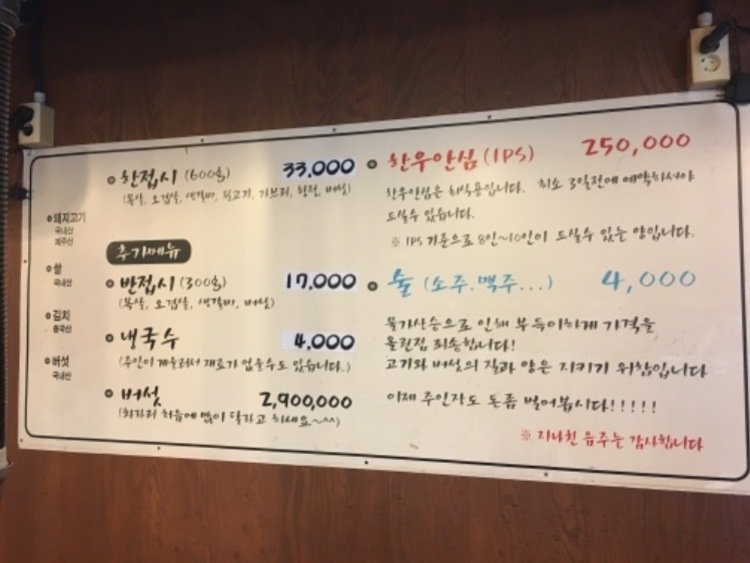 돼지고기
국내산
제주산
쌀
국내산
김치
중국산
버섯
국내산
한접시 (600g) 33,000
(목살, 오겹살, 생갈비, 뒷고기, 가브리, 항정, 버섯)
추가메뉴
반접시 (300g) 17,000
(목살, 오겹살, 생갈비, 버섯)
냉국수 4,000
(주인이 게을러서 재료가 없을수도 있습니다.)
버섯 2,900,000
(차라리 처음에 많이 달라고 하세요~^^)
한우안심 (1PS) 250,000
한우안심은 회식용입니다. 최소 3일전에 예약하셔야
드실수 있습니다.
※ 1PS 기준으로 8인~10인이 드실수 있는 양입니다.
술 (소주.맥주...) 4,000
물가상승으로 인해 부득이하게 가격을
올린점 죄송합니다!
고기와 버섯의 질과 양은 지키기 위함입니다
이제 주인장도 돈좀 벌어봅시다!!!!!
※ 지나친 음주는 감사합니다